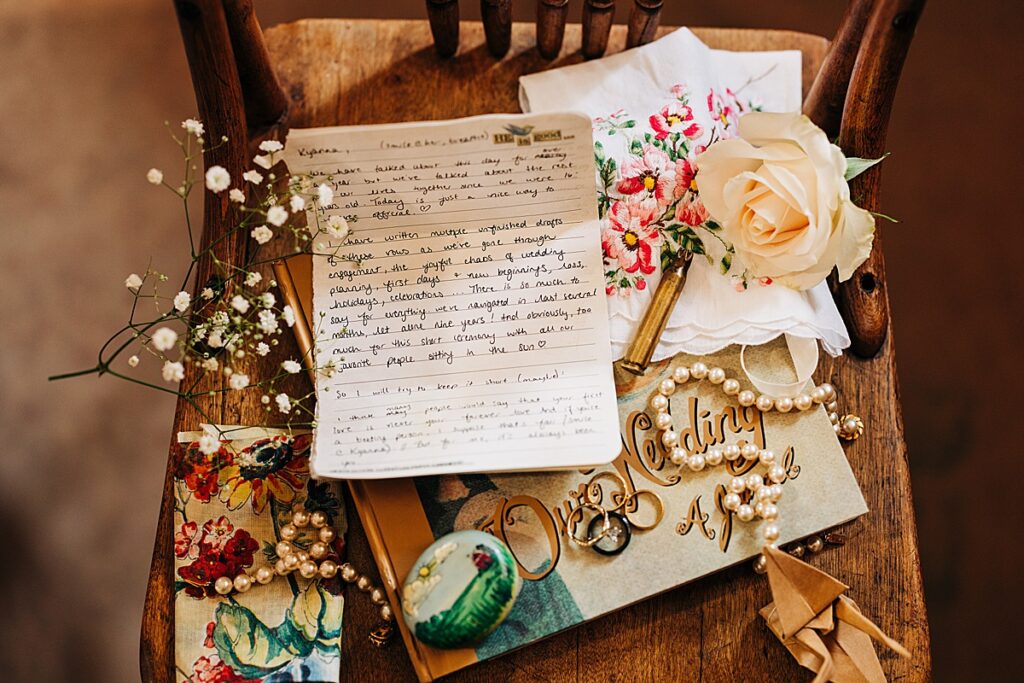 Kyanna, (smile @ her, breathe)
HE is good
We have talked about this day for over
year but we've talked about the rest
our lives together since we were 16
years old. Today is just a nice way to
official ♡
I have written multiple unfinished drafts
of these vows as we've gone through
engagement, the joyful chaos of wedding
planning, first days & new beginnings, loss,
holidays, celebrations... There is so much to
say for everything we've navigated in last several
months, let alone nine years! And obviously, too
much for this short ceremony with all our
favorite people sitting in the sun ♡
So I will try to keep it short (maybe)!
I think many people would say that your first
love is never your forever love. And if you're
a betting person, I suppose that's fair (smile
@ Kyanna) But for me, it's always been
you
Our Wedding
A